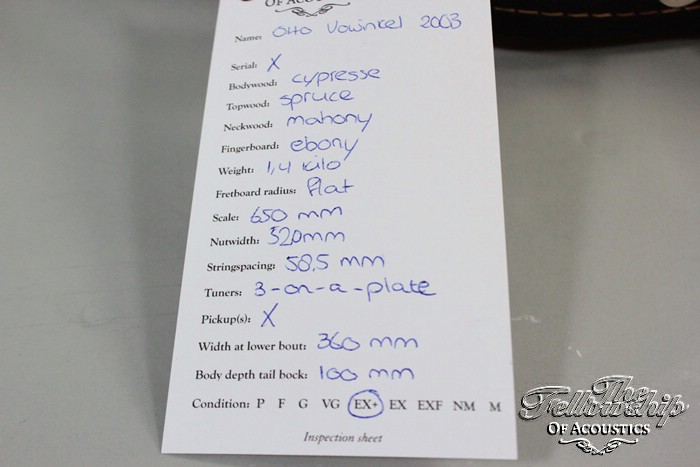 OF ACOUSTICS
Name: Otto Vowinkel 2003
Serial: X
Bodywood: cypresse
Topwood: spruce
Neckwood: mahony
Fingerboard: ebony
Weight: 1,4 kilo
Fretboard radius: flat
Scale: 650 mm
Nutwidth: 520mm
Stringspacing: 58,5 mm
Tuners: 3-on-a-plate
Pickup(s): X
Width at lower bout: 360 mm
Body depth tail bock: 100 mm
Condition: P F G VG EX+ EX EXF NM M
Inspection sheet
The
Fellowship
OF ACOUSTICS